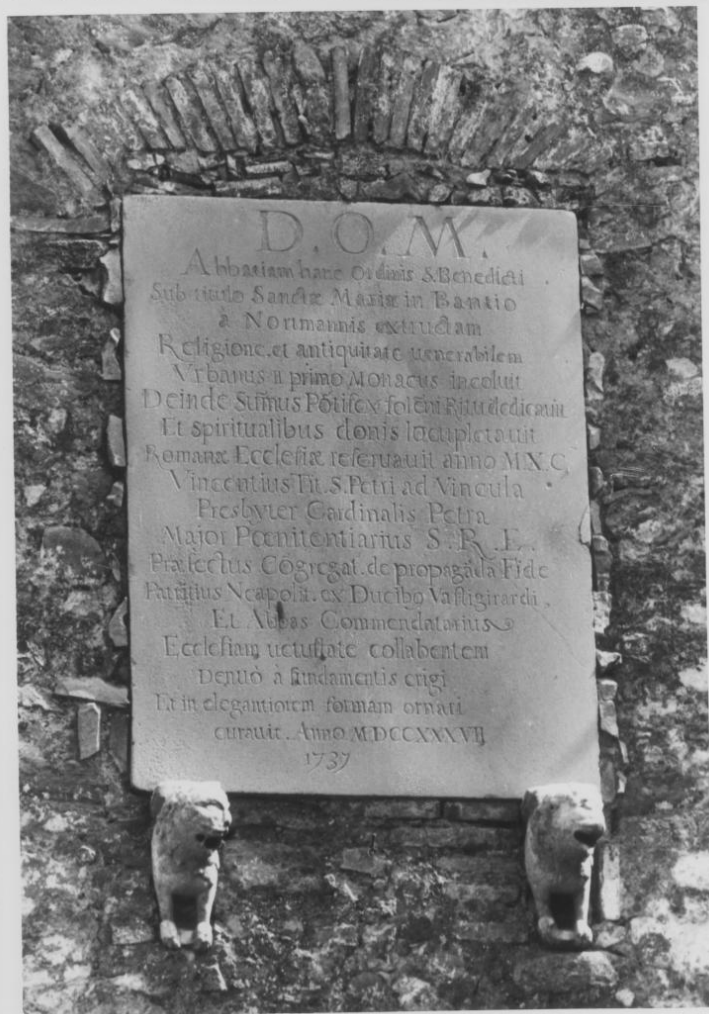 D. O. M.
Abbatiam hanc Ordinis S. Benedicti
Sub titulo Sanctæ Mariæ in Bantio
à Nortmannis extructam
Religione. et antiquitate uenerabilem
Vrbanus II primo Monacus incoluit
Deinde Sum̄us Pōtifex soleni Ritu dedicauit
Et spiritualibus donis locupletauit
Romanæ Ecclesiæ reseruauit anno M.X.C,
Vincentius Tit. S. Petri ad Vincula
Presbyter Cardinalis Petra
Major Pœnitentiarius S. R. E.
Præfectus Cōgregat. de propagādā Fide
Patritius Neapolit. ex Ducibꝯ Vastigirardi
Et Abbas Commendatarius
Ecclesiam uetustate collabentem
Denuò à fundamentis erigi
Et in elegantiorem formam ornari
curauit. Anno MDCCXXXVII
1737